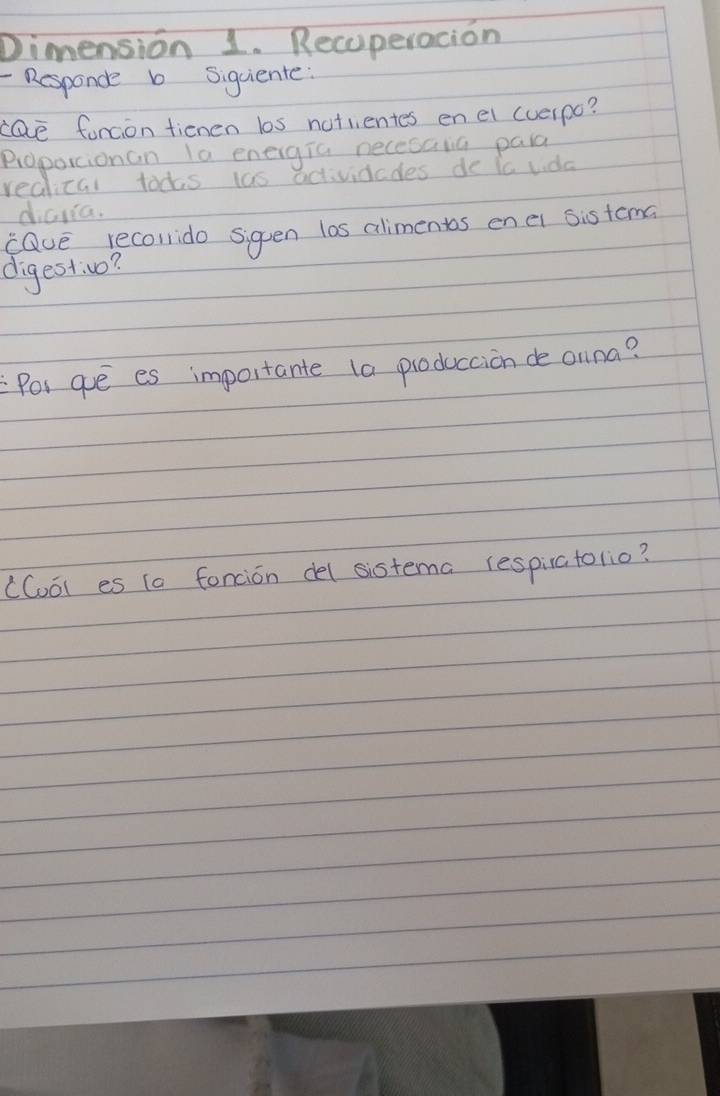 Dimensión 1. Recuperación
- Responde lo siguiente:
¿Qué función tienen los nutrientes en el cuerpo?
Proporcionan la energía necesaria para
realizar todas las actividades de la vida
diaria.
¿Qué recorrido siguen los alimentos en el sistema
digestivo?
¿Por qué es importante la producción de orina?
¿Cuál es la función del sistema respiratorio?